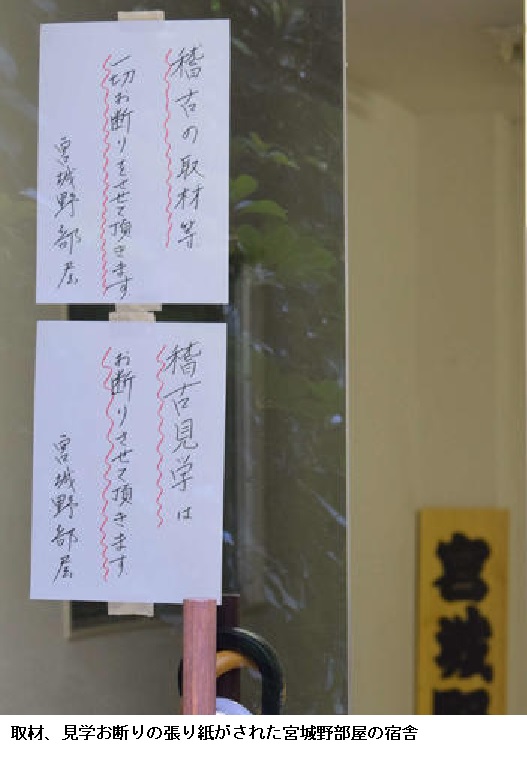 稽古の取材等
一切お断りをさせて頂きます
宮城野部屋
稽古見学は
お断りさせて頂きます
宮城野部屋
宮城野
取材、見学お断りの張り紙がされた宮城野部屋の宿舎